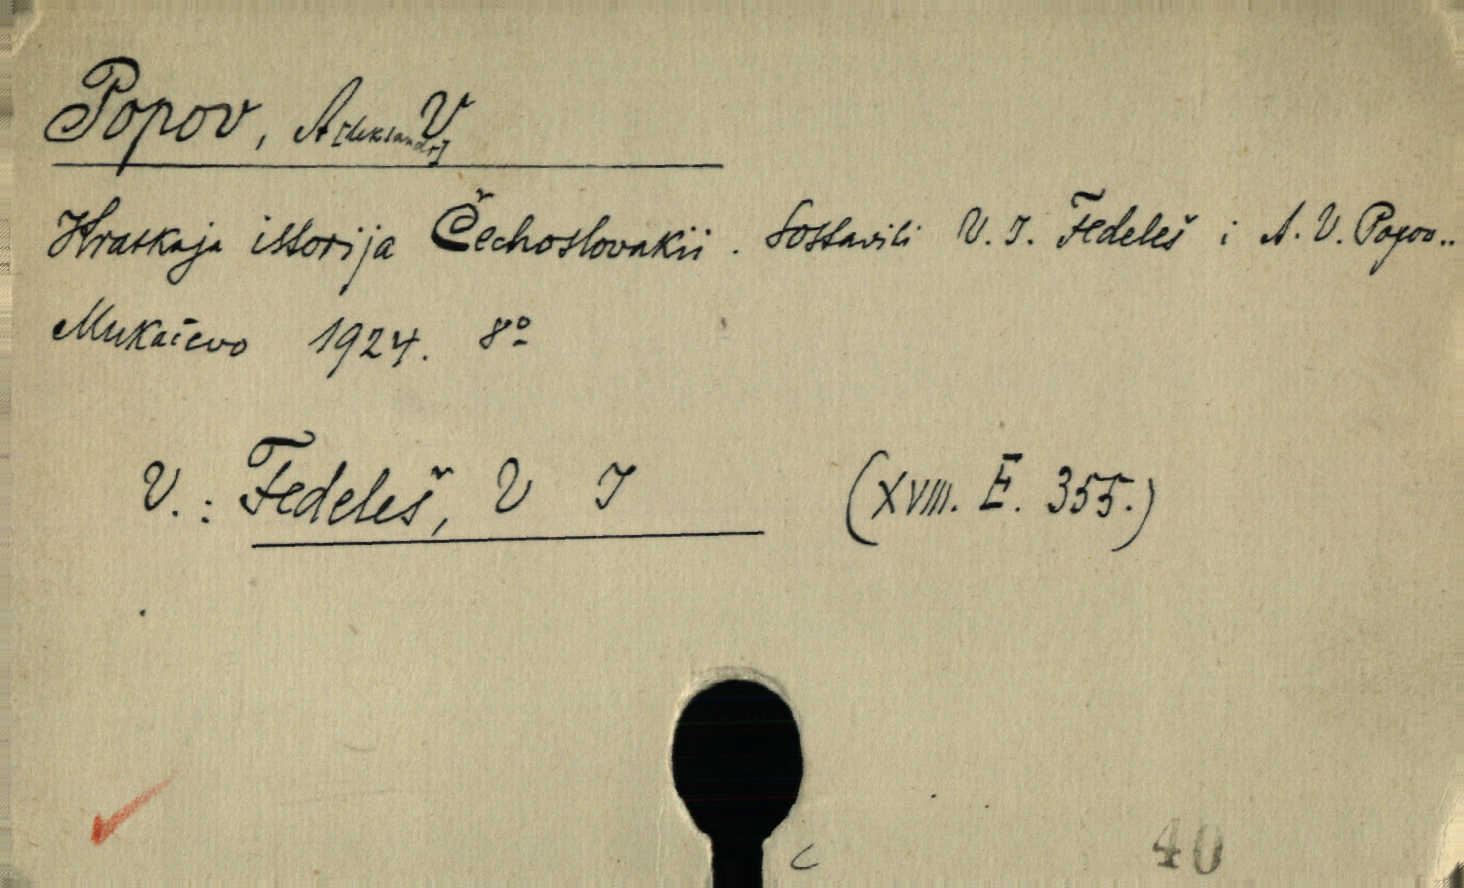 Popov, A[leksandr] V
Kratkaja istorija Čechoslovakii. Sostavili V. I. Fedeleš i A. V. Popov..
Mukačevo 1924. 8º
V.: Fedeleš, V I (XVIII. E. 355.)
c
40